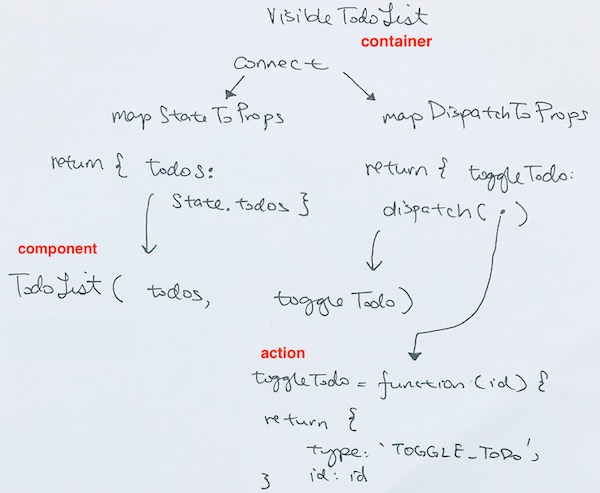 VisibleTodoList
container
connect
mapStateToProps
mapDispatchToProps
return { todos:
state.todos }
return { toggleTodo:
dispatch( . )
component
TodoList ( todos, toggleTodo )
action
toggleTodo = function (id) {
return {
type: 'TOGGLE_TODO',
id: id
}